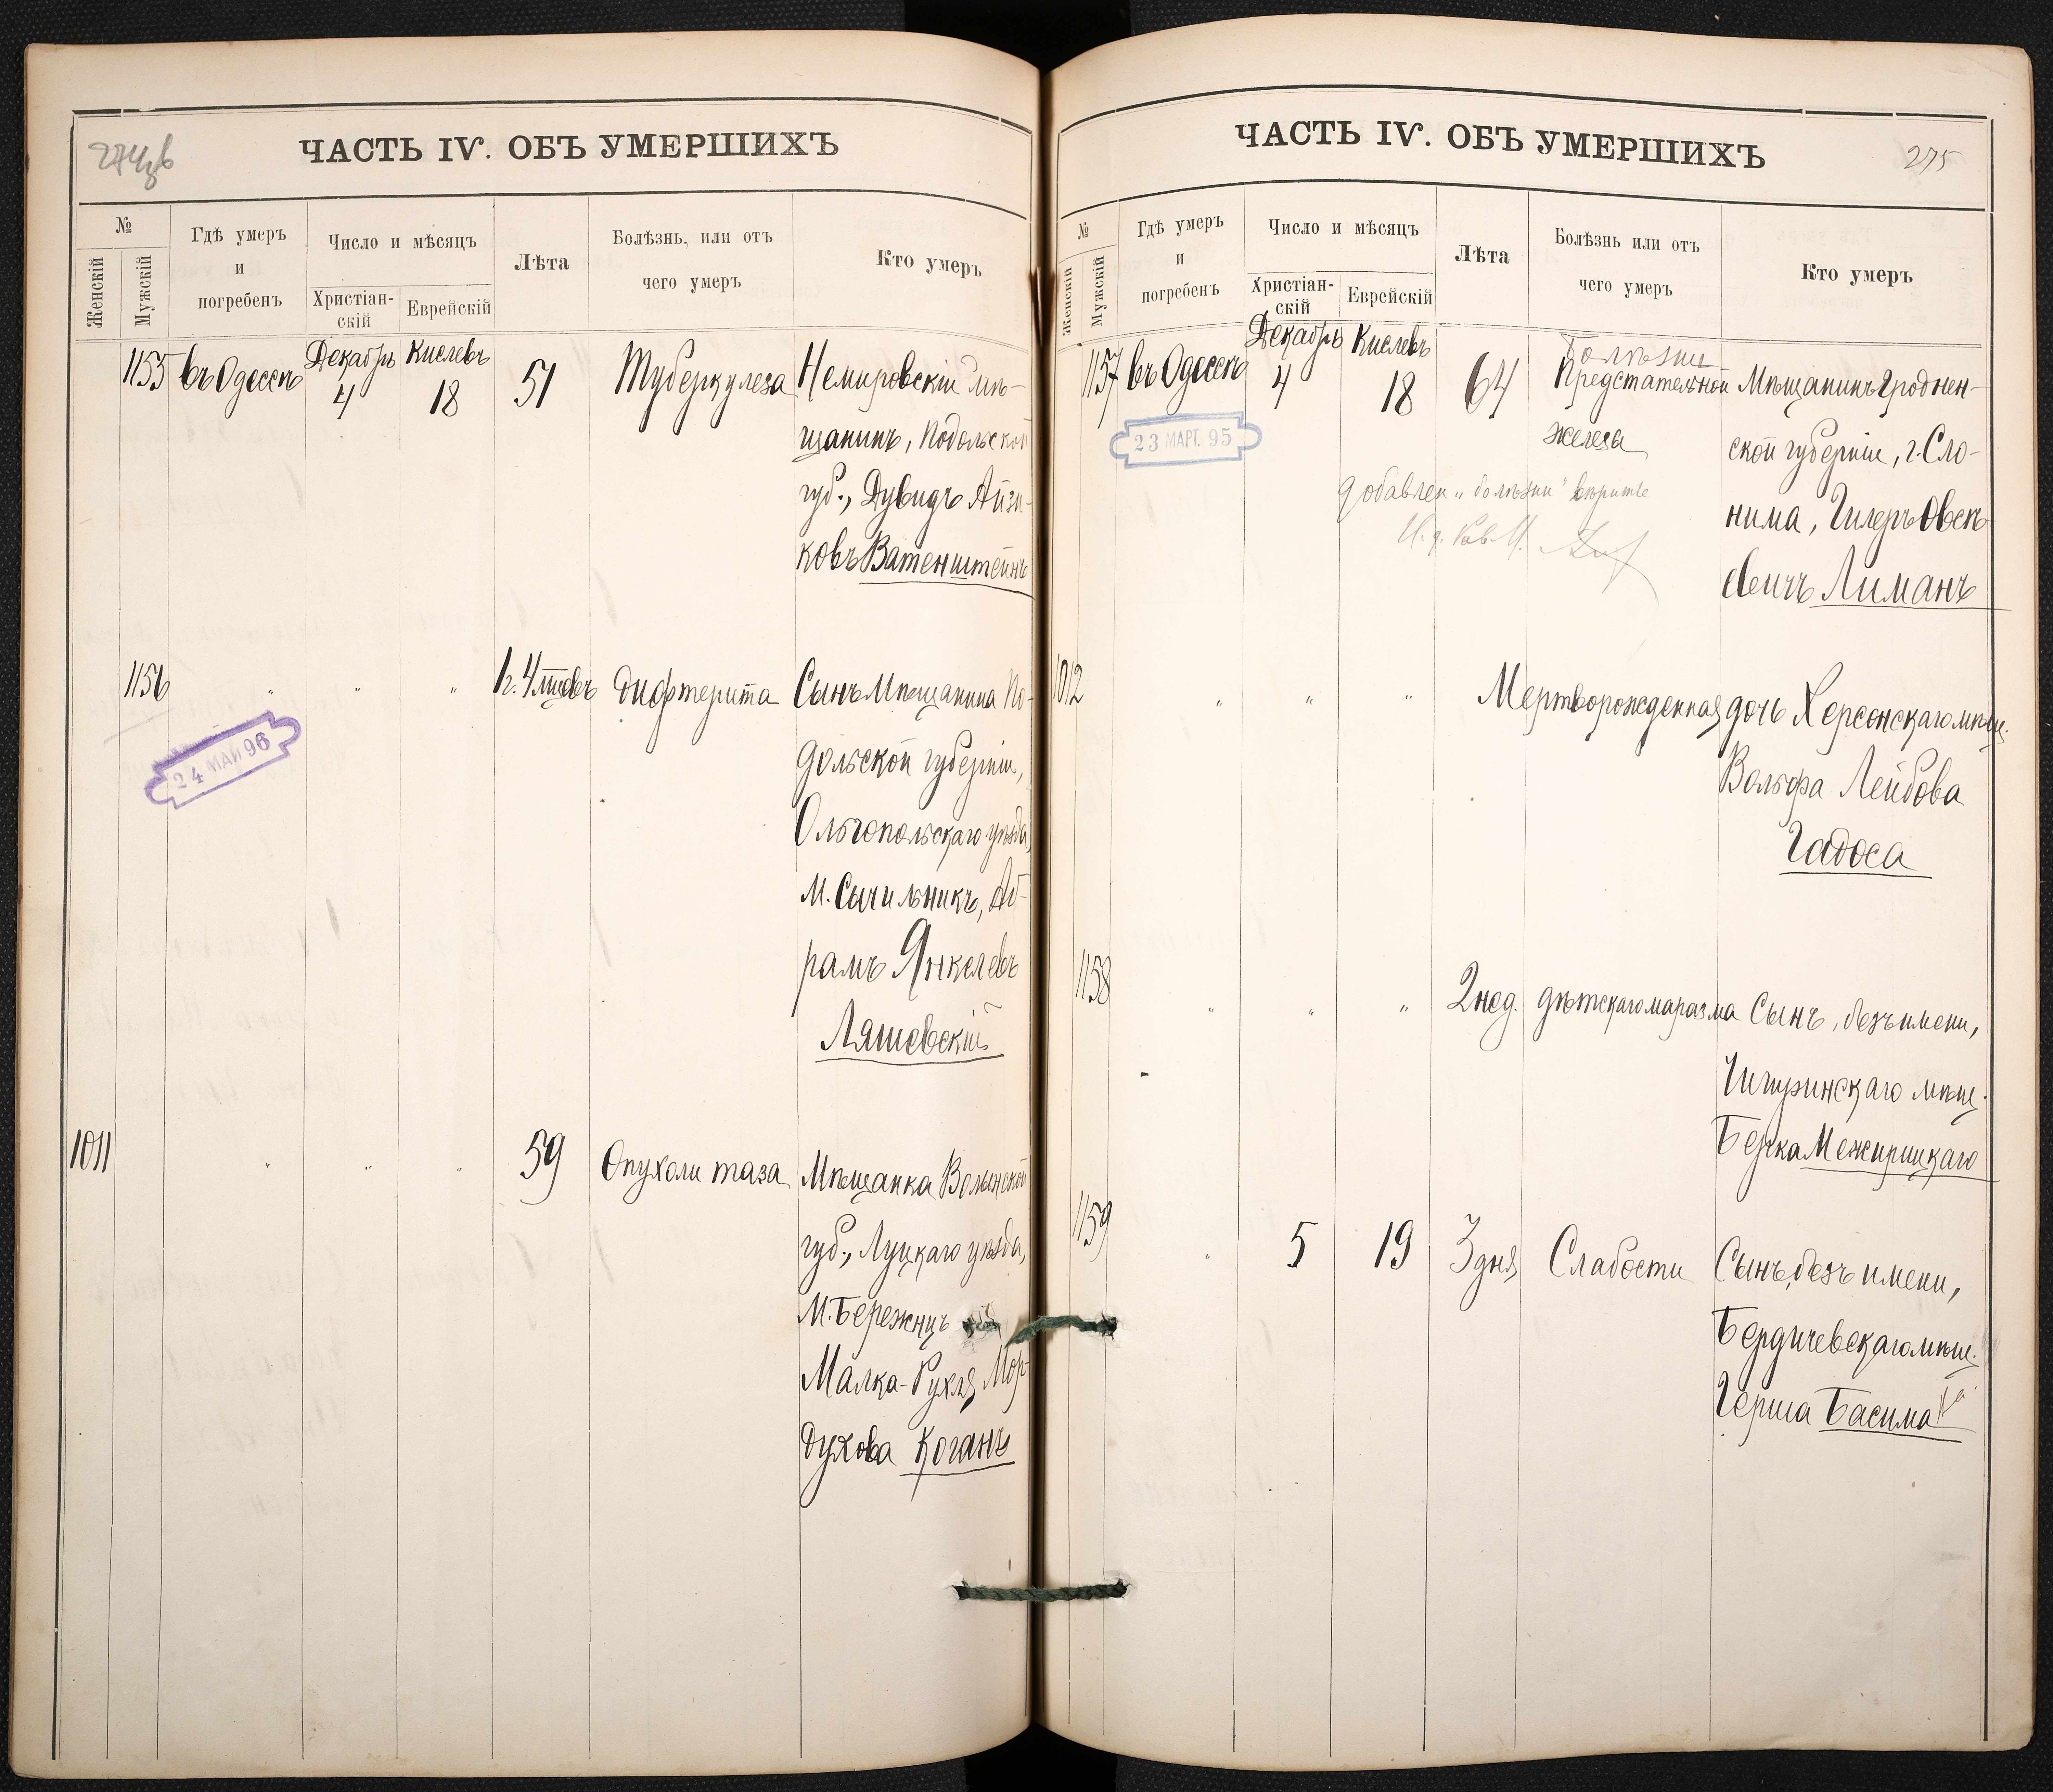 ЧАСТЬ IV. ОБЪ УМЕРШИХЪ
№
Женскій
Мужскій
Гдѣ умеръ
и
погребенъ
Число и мѣсяцъ
Христіан-
скій
Еврейскій
Лѣта
Болѣзнь, или отъ
чего умеръ
Кто умеръ
1155 въ Одессѣ Декабрь 4 Кислевъ 18 51 Туберкулеза Немировскій мѣ-
щанинъ, Подольской
губ., Дувидъ Айзи-
ковъ Ватенштейнъ
1156 " " " 4 дифтерита Сынъ Мѣщанина По-
дольской губерніи,
Ольгопольскаго уѣзда,
М. Аб-
рамъ Янкелевъ
Ляшевскій
24 МАЙ 96
1011 " " " 59 Опухоли таза Мѣщанка Волынской
губ., Луцкаго уѣзда,
М. Бережницъ
Малка-Рухля Мор-
духова Коганъ
ЧАСТЬ IV. ОБЪ УМЕРШИХЪ
275
№
Женскій
Мужскій
Гдѣ умеръ
и
погребенъ
Число и мѣсяцъ
Христіан-
скій
Еврейскій
Лѣта
Болѣзнь или отъ
чего умеръ
Кто умеръ
болѣзни
1157 въ Одессѣ Декабрь 4 Кислевъ 18 64 Предстательной Мѣщанинъ Гроднен-
железы ской губерніи, г. Сло-
23 МАРТ. 95
нима, Гилеръ Овсѣ-
евичъ Лиманъ
добавлен „болѣзни" вѣрить
1012 " " " Мертворожденная дочь Херсонскаго мѣщ.
Вольфа Лейбова
Гадоса
1158 " " " 2 нед. дѣтскаго маразма Сынъ, безъ имени,
Чигиринскаго мѣщ.
Берка Межирицкаго
1159 " 5 19 3 дня Слабости Сынъ, безъ имени,
Бердичевскаго мѣщ.
Герша Басима